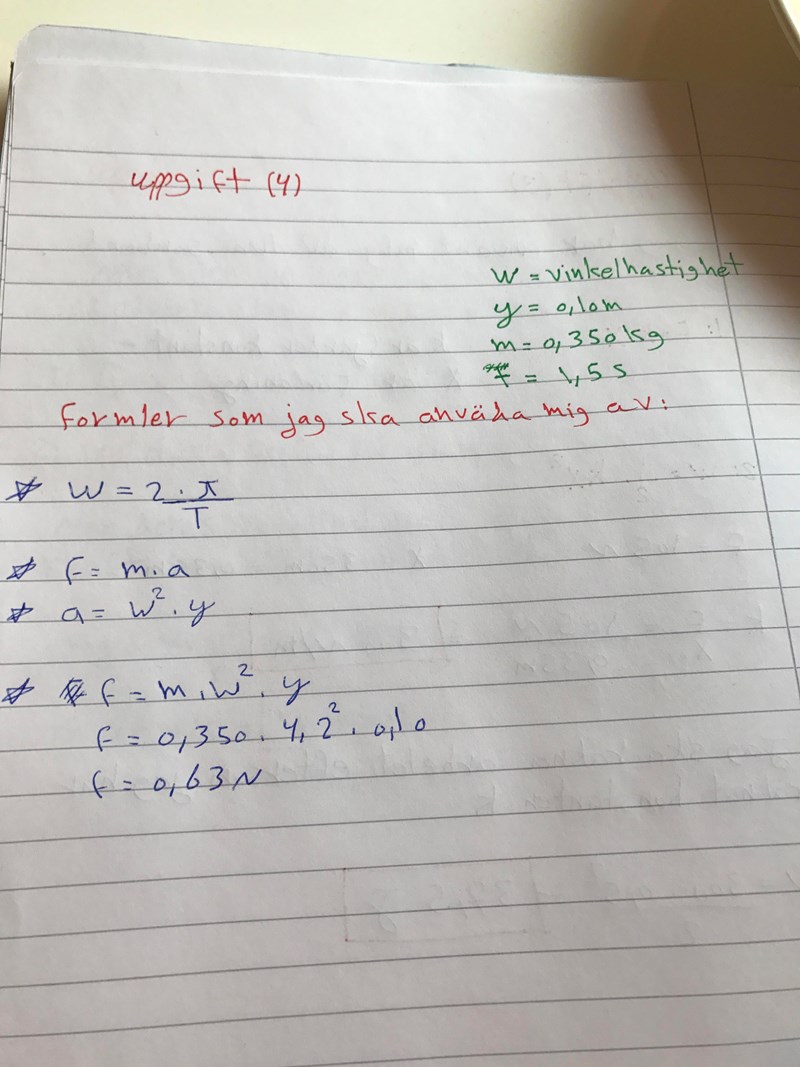 uppgift (4)
W = vinkelhastighet
y = 0,10m
m = 0,350kg
= 1,5 s
formler som jag ska använda mig av:
* W = 2·π
T
* f = m·a
* a = W²·y
* f = m·W²·y
f = 0,350·4,2²·0,10
f = 0,63N